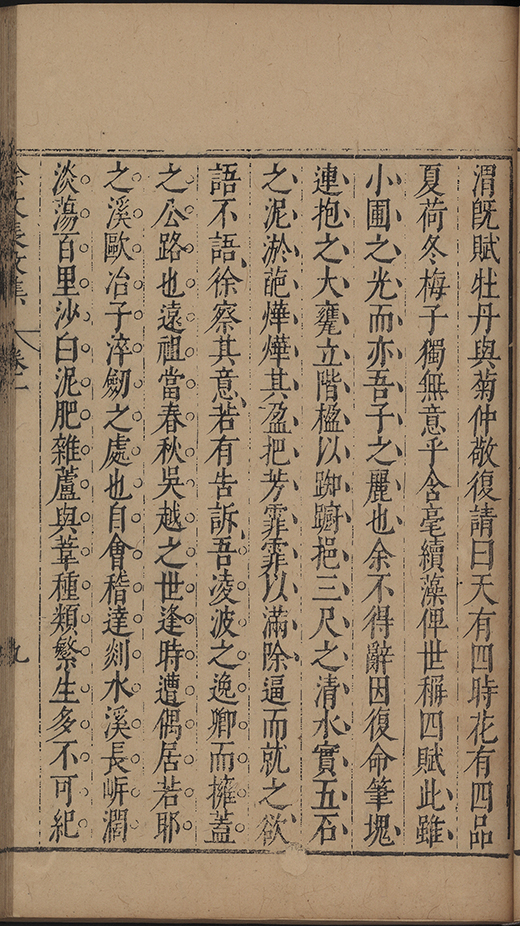 渭既賦牡丹與菊仲敬復請曰天有四時花有四品
夏荷冬梅子獨無意乎含毫續藻俾世稱四賦此雖
小圃之光而亦吾子之麗也余不得辭因復命筆塊
連抱之大甕立階楹以踟躕挹三尺之清水實五石
之泥淤葩燁燁其盈把芳霏霏以滿除逼而就之欲
語不語徐察其意若有告訴吾凌波之逸卿而擁蓋
之公路也遠祖當春秋吳越之世逢時遭偶居若耶
之溪歐冶子淬劒之處也自會稽達剡水溪長岍濶
淡蕩百里沙白泥肥雜蘆與葦種類繁生多不可紀
徐文長文集 卷一 九